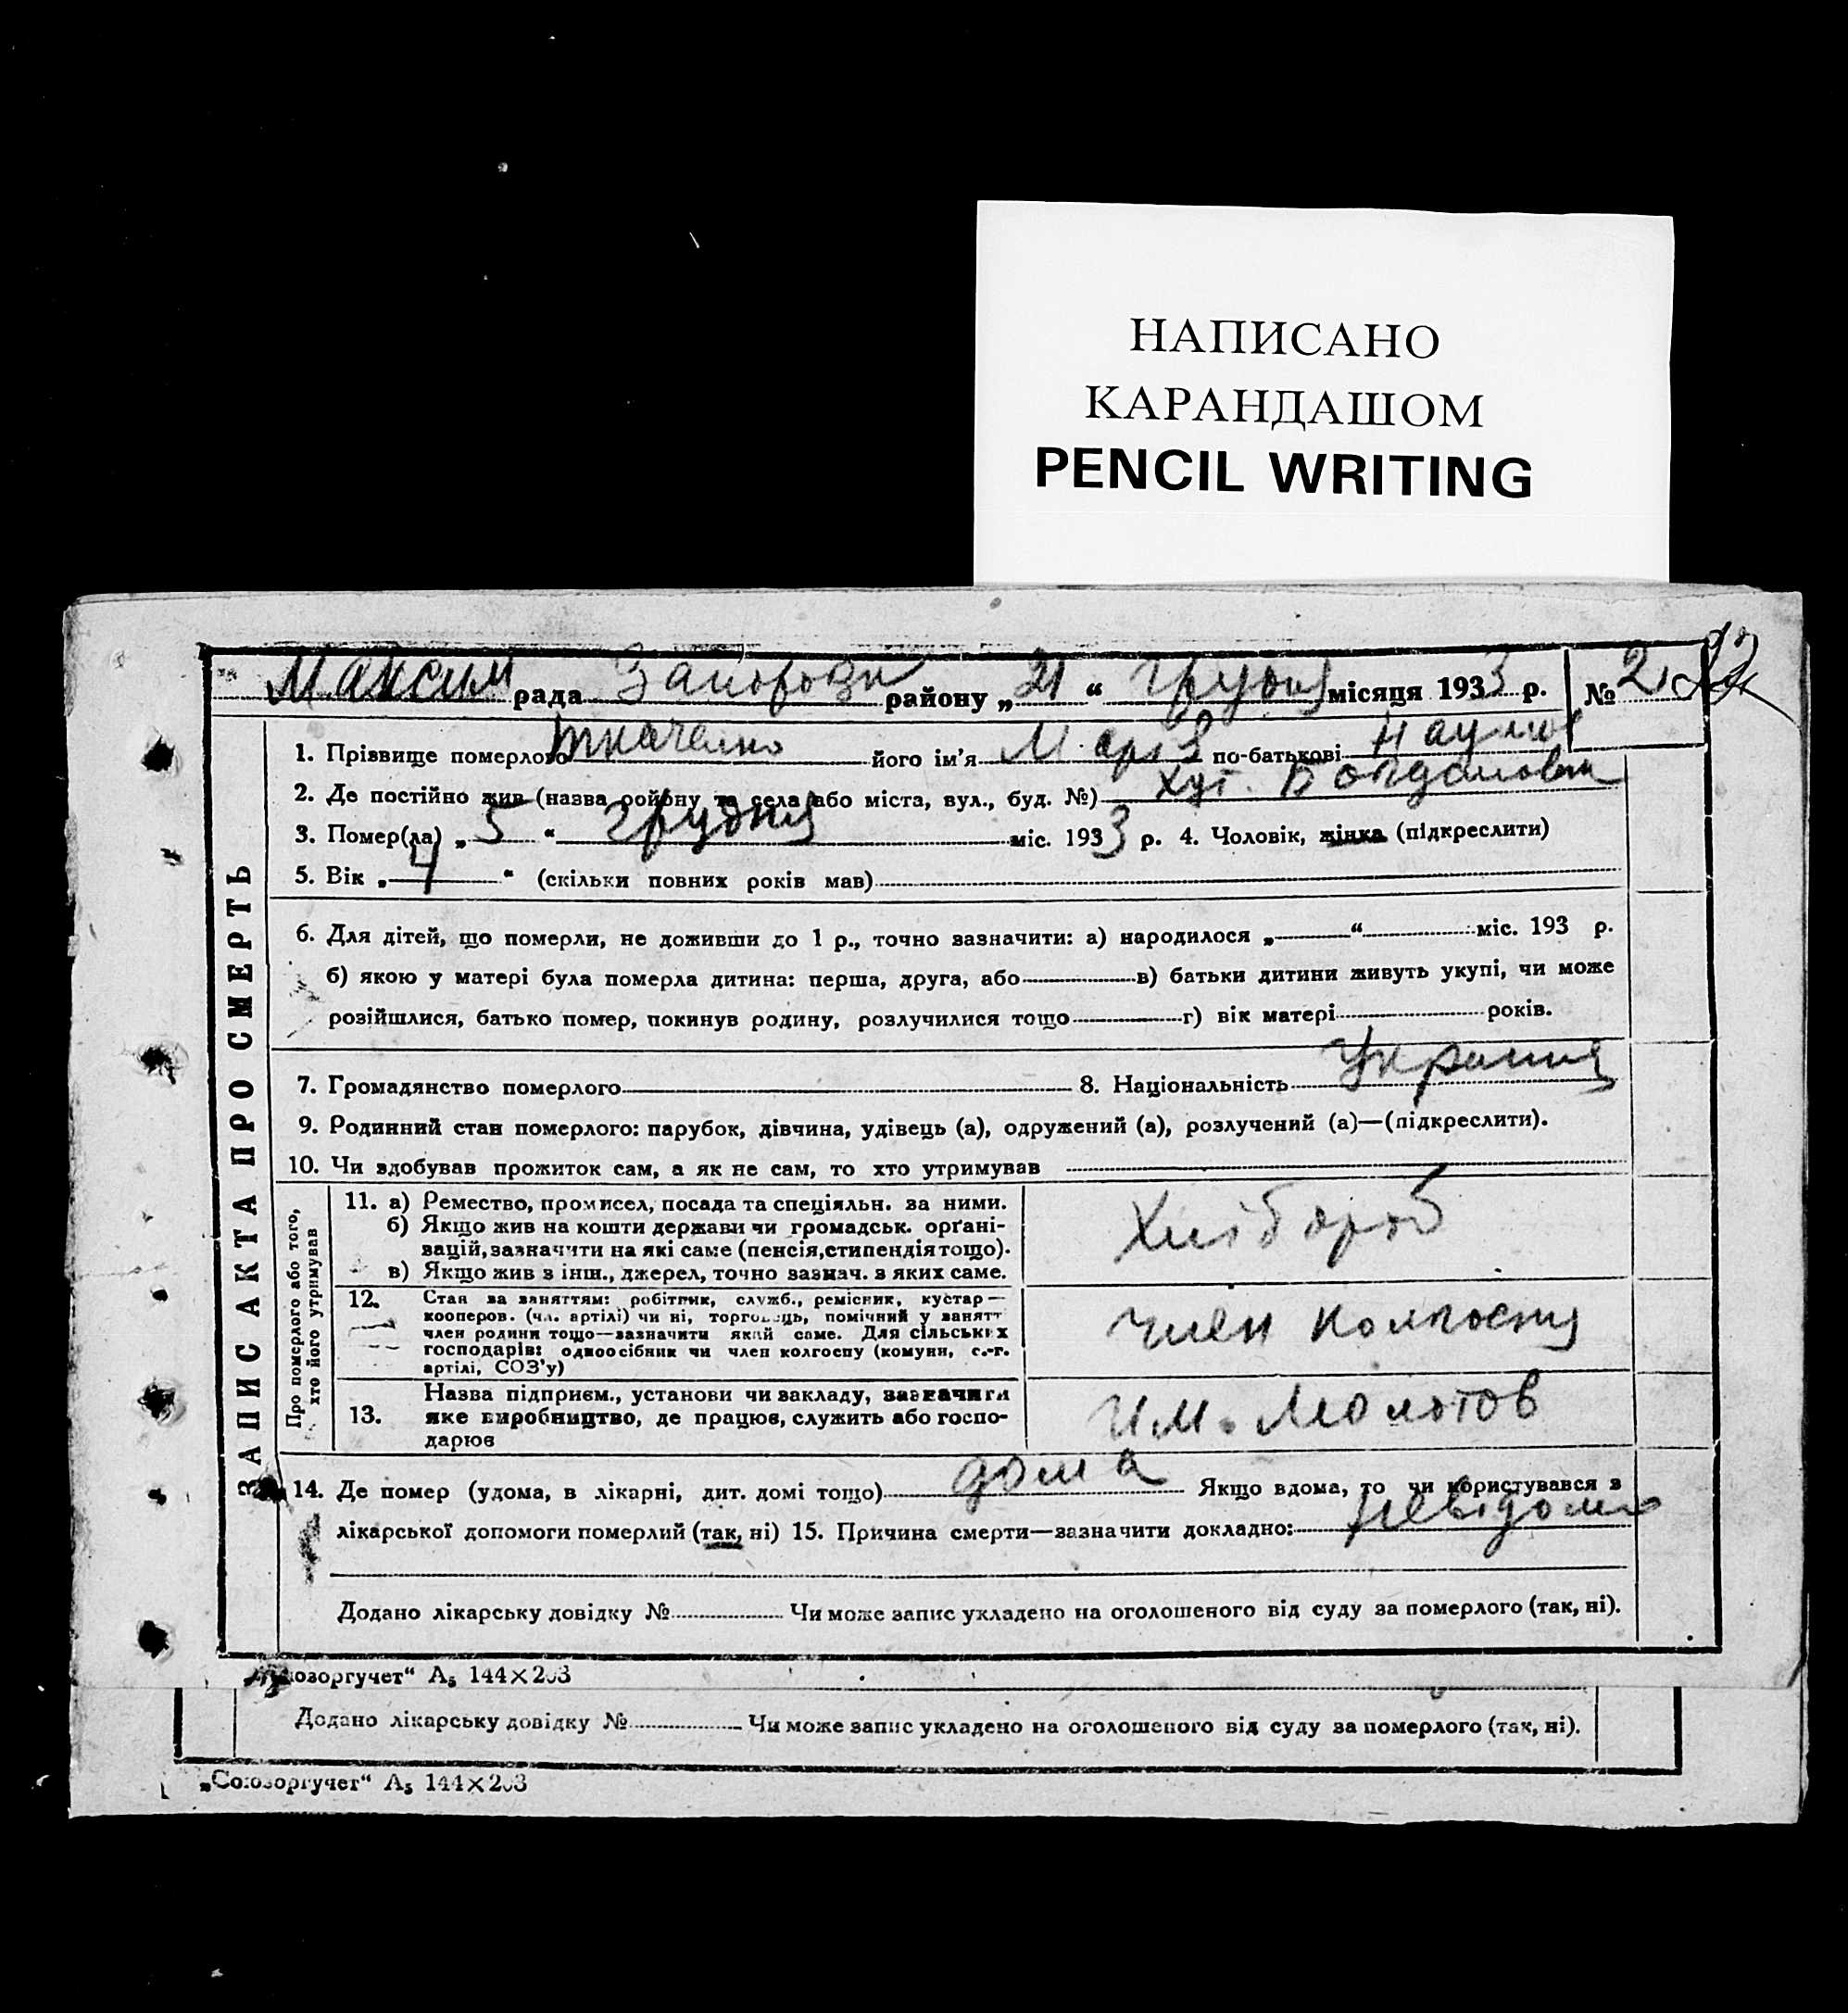 НАПИСАНО
КАРАНДАШОМ
PENCIL WRITING
Максим рада районy „21“ грудня місяця 1933 р. № 2
1. Прізвище померлого Ткаченко його ім'я Марія по-батькові Наумов
2. Де постійно жив (назва району та села або міста, вул., буд. №) Хут. Богдановка
3. Помер(ла) „5“ грудня міс. 1933 р. 4. Чоловік, жінка (підкреслити)
5. Вік „4“ (скільки повних років мав)
6. Для дітей, що померли, не доживши до 1 р., точно зазначити: а) народилося „ “ міс. 193 р.
б) якою у матері була померла дитина: перша, друга, або в) батьки дитини живуть укупі, чи може
розійшлися, батько помер, покинув родину, розлучилися тощо г) вік матері років.
7. Громадянство померлого 8. Національність
9. Родинний стан померлого: парубок, дівчина, удівець (а), одружений (а), розлучений (а)—(підкреслити).
10. Чи здобував прожиток сам, а як не сам, то хто утримував
ЗАПИС АКТА ПРО СМЕРТЬ
Про померлого або того,
хто його утримував
11. а) Ремество, промисел, посада та спеціяльн. за ними.
б) Якщо жив на кошти держави чи громадськ. орґані-
зацій, зазначити на які саме (пенсія, стипендія тощо).
в) Якщо жив з інш., джерел, точно зазнач. з яких саме.
Хлібороб
12. Стан за заняттям: робітник, служб., ремісник, кустар—
кооперов. (чл. артілі) чи ні, торговець, помічний у занятт
член родини тощо—зазначити який саме. Для сільських
господарів: одноосібник чи член колгоспу (комуни, с.-г.
артілі, СОЗ'у)
член колгоспу
13. Назва підприєм., установи чи закладу, зазначити
яке виробництво, де працює, служить або госпо-
дарює
им. Молотов
14. Де помер (удома, в лікарні, дит. домі тощо) дома Якщо вдома, то чи користувався з
лікарської допомоги померлий (так, ні) 15. Причина смерти—зазначити докладно: невідомо
Додано лікарську довідку № Чи може запис укладено на оголошеного від суду за померлого (так, ні).
„Союзоргучет“ А₅ 144×203
Додано лікарську довідку № Чи може запис укладено на оголошеного від суду за померлого (так, ні).
„Союзоргучет“ А₅ 144×203